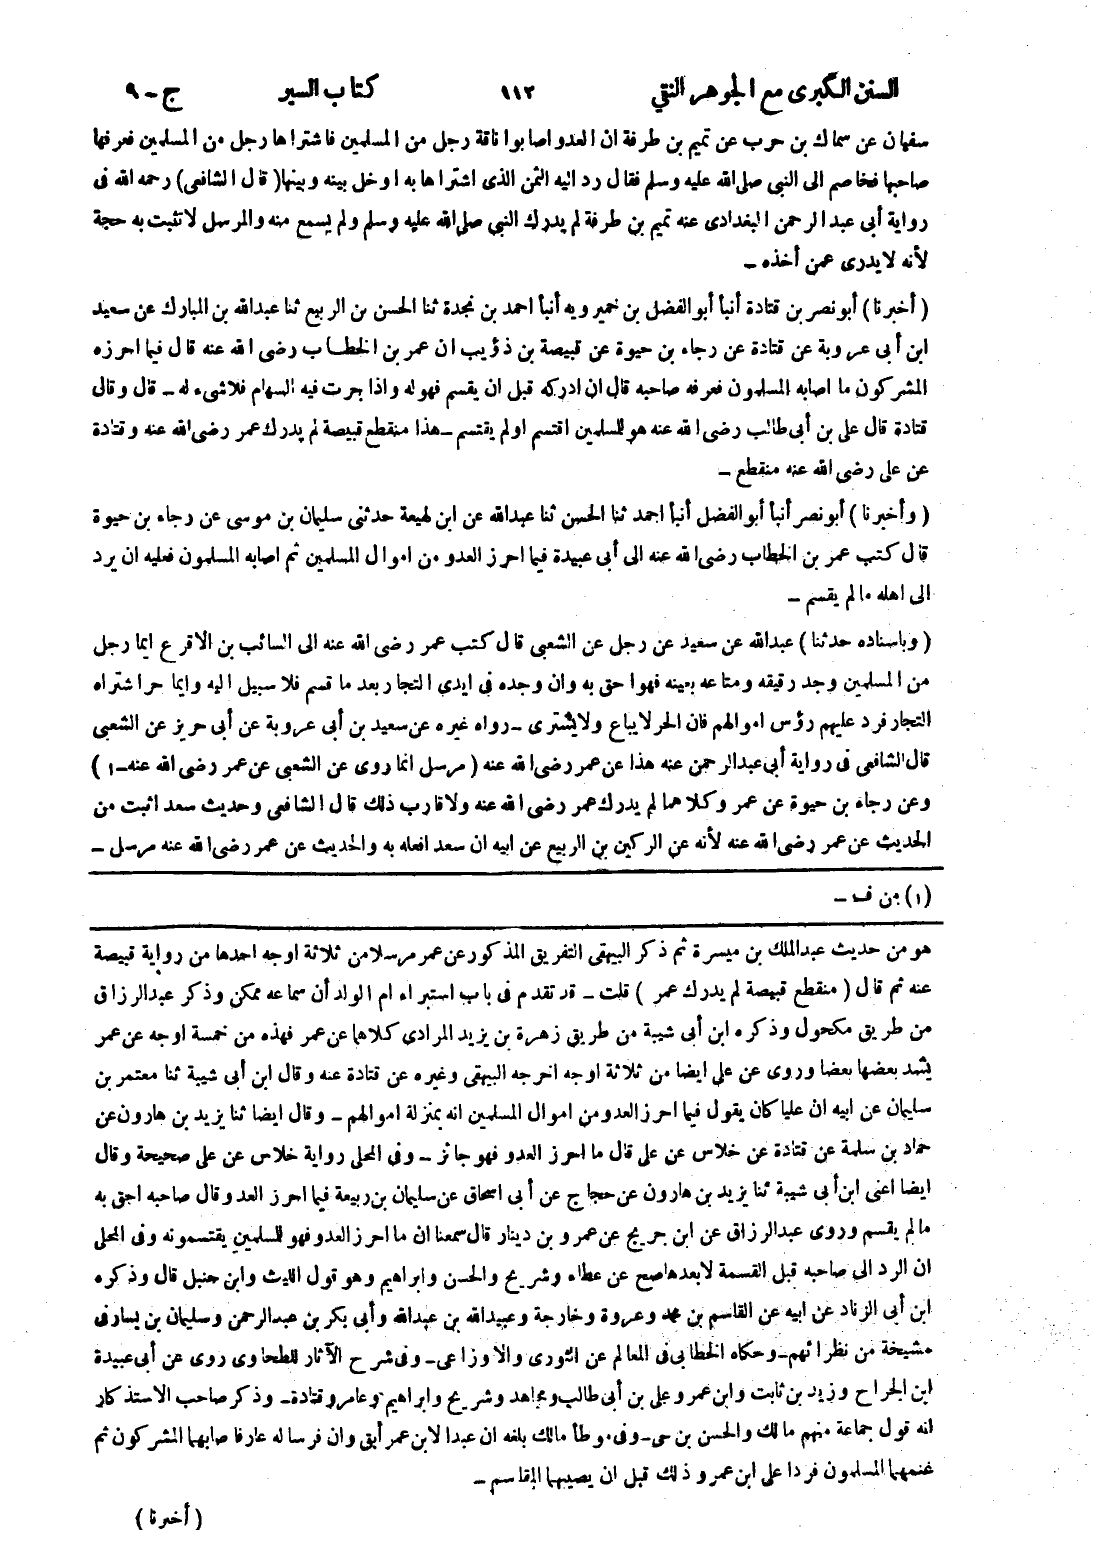 السنن الكبرى مع الجوهر النقي ١١٢ كتاب السير ج - ٩
سفيان عن سماك بن حرب عن تميم بن طرفة ان العدو اصابوا ناقة رجل من المسلمين فاشتراها رجل من المسلمين فعرفها
صاحبها فخاصم الى النبي صلى الله عليه وسلم فقال رد اليه الثمن الذى اشتراها به او خل بينه وبينها ( قال الشافعى ) رحمه الله فى
رواية أبى عبد الرحمن البغدادى عنه تميم بن طرفة لم يدرك النبي صلى الله عليه وسلم ولم يسمع منه والمرسل لا تثبت به حجة
لأنه لا يدرى عمن أخذه ـ
( أخبرنا ) أبو نصر بن قتادة أنبأ أبو الفضل بن خميرويه أنبأ احمد بن نجدة ثنا الحسن بن الربيع ثنا عبدالله بن المبارك عن سعيد
ابن أبى عروبة عن قتادة عن رجاء بن حيوة عن قبيصة بن ذؤيب ان عمر بن الخطاب رضى الله عنه قال فيما احرزه
المشركون ما اصابه المسلمون فعرفه صاحبه قال ان ادركه قبل ان يقسم فهو له واذا جرت فيه السهام فلا شىء له ـ قال وقال
قتادة قال على بن أبى طالب رضى الله عنه هو للمسلمين اقتسم او لم يقتسم ـ هذا منقطع قبيصة لم يدرك عمر رضى الله عنه وقتادة
عن على رضى الله عنه منقطع ـ
( وأخبرنا ) أبو نصر أنبأ أبو الفضل أنبأ احمد ثنا الحسن ثنا عبدالله عن ابن لهيعة حدثنى سليمان بن موسى عن رجاء بن حيوة
قال كتب عمر بن الخطاب رضى الله عنه الى أبى عبيدة فيما احرز العدو من اموال المسلمين ثم اصابه المسلمون فعليه ان يرد
الى اهله ما لم يقسم ـ
( وباسناده حدثنا ) عبدالله عن سعيد عن رجل عن الشعبى قال كتب عمر رضى الله عنه الى السائب بن الاقرع ايما رجل
من المسلمين وجد رقيقه ومتاعه بعينه فهو احق به وان وجده فى ايدى التجار بعد ما قسم فلا سبيل اليه وايما حر اشتراه
التجار فرد عليهم رؤس اموالهم فان الحر لا يباع ولا يشترى ـ رواه غيره عن سعيد بن أبى عروبة عن أبى حريز عن الشعبى
قال الشافعى فى رواية أبى عبدالرحمن عنه هذا عن عمر رضى الله عنه ( مرسل انما روى عن الشعبى عن عمر رضى الله عنه ـ ١ )
وعن رجاء بن حيوة عن عمر وكلاهما لم يدرك عمر رضى الله عنه ولا قارب ذلك قال الشافعى وحديث سعد اثبت من
الحديث عن عمر رضى الله عنه لأنه عن الركين بن الربيع عن ابيه ان سعدا فعله به والحديث عن عمر رضى الله عنه مرسل ـ
(١) من ف ـ
هو من حديث عبدالملك بن ميسرة ثم ذكر البيهقى التفريق المذكور عن عمر مرسلا من ثلاثة اوجه احدها من رواية قبيصة
عنه ثم قال ( منقطع قبيصة لم يدرك عمر ) قلت ـ قد تقدم فى باب استبراء ام الولد أن سماعه ممكن وذكر عبدالرزاق
من طريق مكحول وذكره ابن أبى شيبة من طريق زهرة بن يزيد المرادى كلاهما عن عمر فهذه من خمسة اوجه عن عمر
يشد بعضها بعضا وروى عن على ايضا من ثلاثة اوجه اخرجه البيهقى وغيره عن قتادة عنه وقال ابن أبى شيبة ثنا معتمر بن
سليمان عن ابيه ان عليا كان يقول فيما احرز العدو من اموال المسلمين انه بمنزلة اموالهم ـ وقال ايضا ثنا يزيد بن هارون عن
حماد بن سلمة عن قتادة عن خلاس عن على قال ما احرز العدو فهو جائز ـ وفى المحلى رواية خلاس عن على صحيحة وقال
ايضا اعنى ابن أبى شيبة ثنا يزيد بن هارون عن حجاج عن أبى اسحاق عن سليمان بن ربيعة فيما احرز العدو قال صاحبه احق به
ما لم يقسم وروى عبدالرزاق عن ابن جريج عن عمرو بن دينار قال سمعنا ان ما احرز العدو فهو للمسلمين يقتسمونه وفى المحلى
ان الرد الى صاحبه قبل القسمة لا بعدها صح عن عطاء وشريح والحسن وابراهيم وهو قول الليث وابن حنبل قال وذكره
ابن أبى الزناد عن ابيه عن القاسم بن محمد وعروة وخارجة وعبيدالله بن عبدالله وأبى بكر بن عبدالرحمن وسليمان بن يسار فى
مشيخة من نظرائهم ـ وحكاه الخطابى فى المعالم عن الثورى والاوزاعى ـ وفى شرح الآثار للطحاوى روى عن أبى عبيدة
ابن الجراح وزيد بن ثابت وابن عمر وعلى بن أبى طالب ومجاهد وشريح وابراهيم وعامر وقتادة ـ وذكر صاحب الاستذكار
انه قول جماعة منهم مالك والحسن بن حى ـ وفى موطأ مالك بلغه ان عبدا لابن عمر أبق وان فرسا له عار فاصابهما المشركون ثم
غنمهما المسلمون فردا على ابن عمر وذلك قبل ان يصيبهما المقاسم ـ
( أخبرنا )